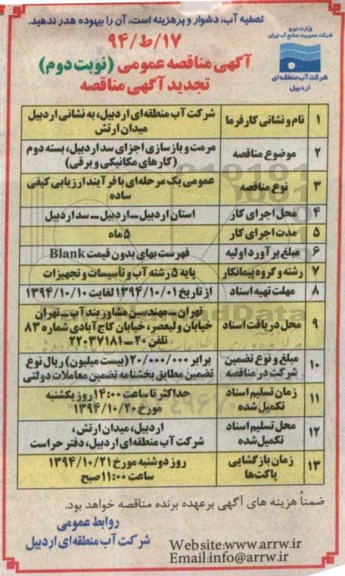 تصفیه آب، دشوار و پرهزینه است، آن را بیهوده هدر ندهید.
وزارت نیرو
شرکت مدیریت منابع آب ایران
شرکت آب منطقه ای
اردبیل
۹۴/ط/۱۷
آگهی مناقصه عمومی (نوبت دوم)
تجدید آگهی مناقصه
۱ نام و نشانی کارفرما شرکت آب منطقه ای اردبیل، به نشانی اردبیل
میدان ارتش
۲ موضوع مناقصه مرمت و بازسازی اجزای سد اردبیل، بسته دوم
(کارهای مکانیکی و برقی)
۳ نوع مناقصه عمومی یک مرحله ای با فرآیند ارزیابی کیفی
ساده
۴ محل اجرای کار استان اردبیل – اردبیل – سد اردبیل
۵ مدت اجرای کار ۵ ماه
۶ مبلغ برآورد اولیه فهرست بهای بدون قیمت Blank
۷ رشته و گروه پیمانکار پایه ۵ رشته آب و تأسیسات و تجهیزات
۸ مهلت تهیه اسناد از تاریخ ۱۳۹۴/۱۰/۰۱ لغایت ۱۳۹۴/۱۰/۱۰
۹ محل دریافت اسناد تهران – مهندسین مشاور بندآب – تهران
خیابان ولیعصر، خیابان کاج آبادی شماره ۸۳
تلفن ۲۰-۲۲۰۳۷۱۸۱
۱۰ مبلغ و نوع تضمین
شرکت در مناقصه برابر ۲۰/۰۰۰/۰۰۰ (بیست میلیون) ریال نوع
تضمین مطابق بخشنامه تضمین معاملات دولتی
۱۱ زمان تسلیم اسناد
تکمیل شده حداکثر تا ساعت ۱۴:۰۰ روز یکشنبه
مورخ ۱۳۹۴/۱۰/۲۰
۱۲ محل تسلیم اسناد
تکمیل شده اردبیل، میدان ارتش،
شرکت آب منطقه ای اردبیل، دفتر حراست
۱۳ زمان بازگشایی
پاکت ها روز دوشنبه مورخ ۱۳۹۴/۱۰/۲۱
ساعت ۱۱:۰۰ صبح
ضمناً هزینه های آگهی بر عهده برنده مناقصه خواهد بود.
روابط عمومی
شرکت آب منطقه ای اردبیل
Website:www.arrw.ir
Email:info@arrw.ir